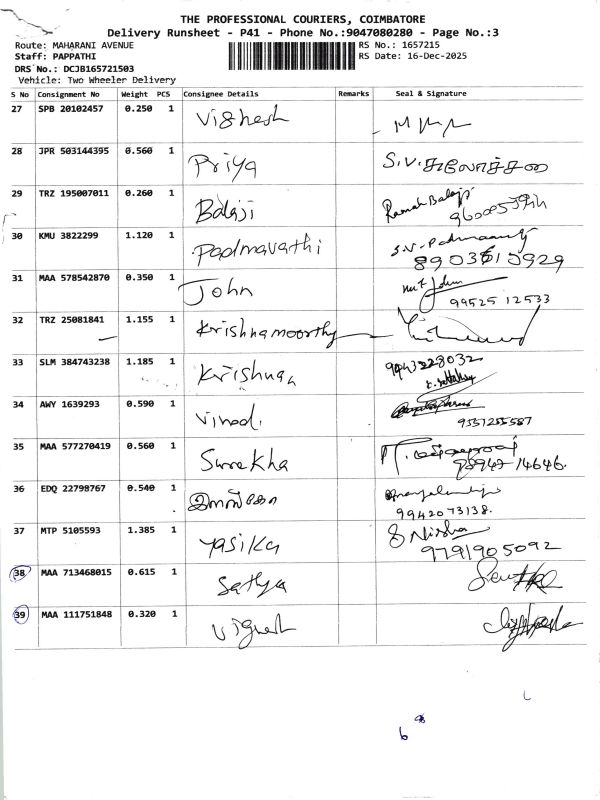 THE PROFESSIONAL COURIERS, COIMBATORE
Delivery Runsheet - P41 - Phone No.:9047080280 - Page No.:3
Route: MAHARANI AVENUE RS No.: 1657215
Staff: PAPPATHI RS Date: 16-Dec-2025
DRS No.: DCJB165721503
Vehicle: Two Wheeler Delivery
S No Consignment No Weight PCS Consignee Details Remarks Seal & Signature
27 SPB 20102457 0.250 1 Vighesh
28 JPR 503144395 0.560 1 Priya S.V.சுலோச்சனா
29 TRZ 195007011 0.260 1 Balaji Ramesh Balaji
30 KMU 3822299 1.120 1 Padmavathi S.V. Padmavathi
8903615929
31 MAA 578542870 0.350 1 John John
99525 12533
32 TRZ 25081841 1.155 1 Krishnamoorthy
33 SLM 384743238 1.185 1 Krishnan 9943228032
34 AWY 1639293 0.590 1 Vinod.
9551255587
35 MAA 577270419 0.560 1 Surekha
14646.
36 EDQ 22798767 0.540 1
9942073138.
37 MTP 5105593 1.385 1 Yasika S Nisha
9791905092
38 MAA 713468015 0.615 1 Sathya
39 MAA 111751848 0.320 1 Vignesh